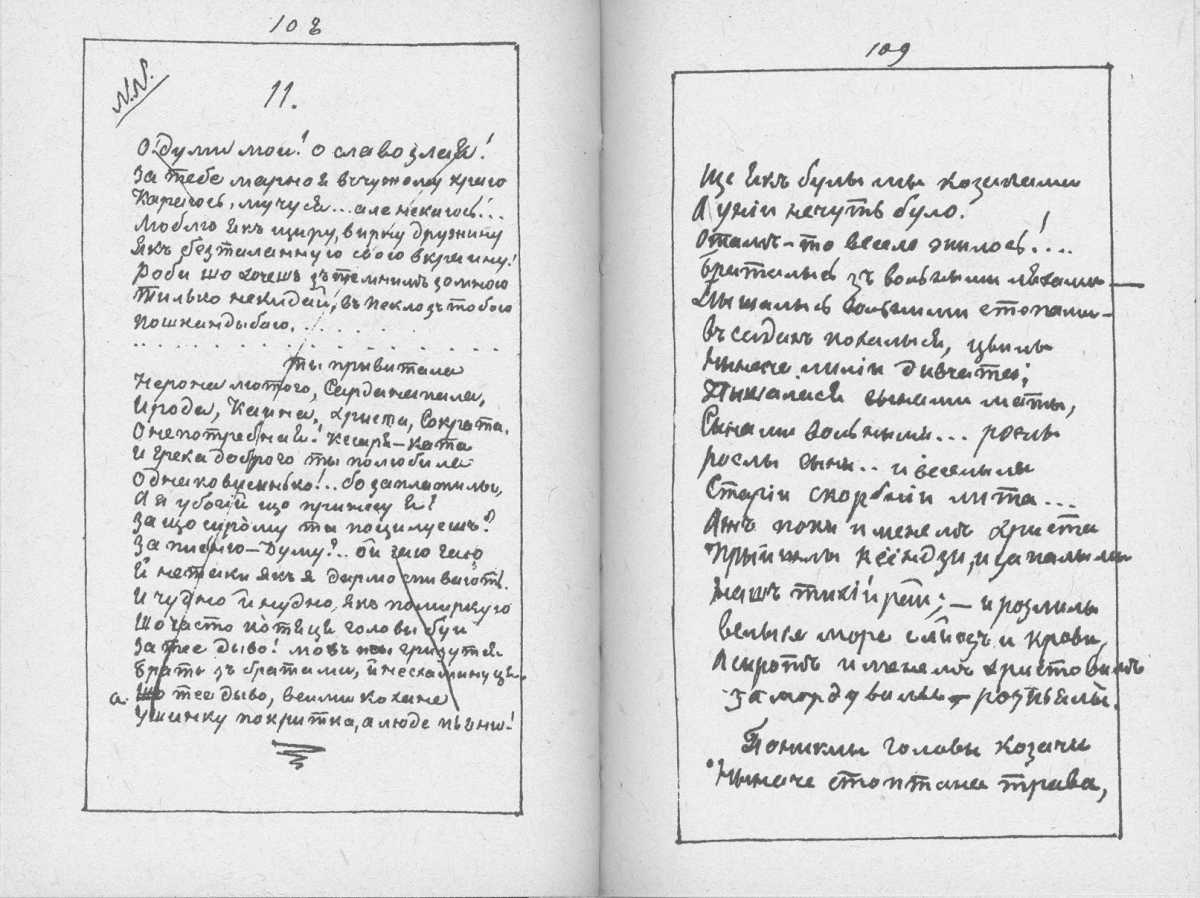 108
N.N.
11.
О думи мои! о слава злая!
За тебе марно я въ чужому краю
Караюсь, мучуся... але некаюсь!...
Люблю якъ щиру, вирну дружину
Якъ безталанную свою вкраину!
Роби шо хочешь зъ темнимъ зо мною
Тилько некидай, въ пекло зъ тобою
пошкандыбаю. . . . . . . .
. . . . . . . . . . . . .
ты привитала
Нерона лютого, Сарданапала,
Ирода, Каина, Христа, Сократа.
О непотребная! Кесаря-ката
И грека доброго ты полюбила
Однаковисинько!.. бо заплатылы,
А я убогій що принесу я?
За що сирому ты поцилуешъ?
За писню-думу?.. ой гаю гаю
Й нетаки якъ я дармо спиваютъ.
И чудно й нудно, якъ помиркую
Шо часто котяця головы буи
За тее дыво! мовъ псы гризутся
Браты зъ братами, й нескаминуця.
а. Шо тее дыво, всими кохане
У шинку покритка, а люде пьяни!
109
Ще якъ булы мы козаками
А уніи нечуть було.
Отамъ-то весело жилось!...
Браталысь зъ вольными ляхами —
Пышалысь вольными степами-
Въ садахъ кохалыся, цвилы
Неначе лиліи дивчата;
Пышалася сынами маты,
Сынами вольными... рослы
рослы сыны.. и веселылы
Старіи скорбніи лита...
Ажъ покы именемъ Христа
Прыйшлы ксіондзи, и запалылы
Нашъ тихій рай; — и розлилы
велыке море слёзъ и крови,
А сыротъ именемъ христовымъ
замордувалы — розпьялы.
Поникли головы козачи
Неначе стоптана трава,